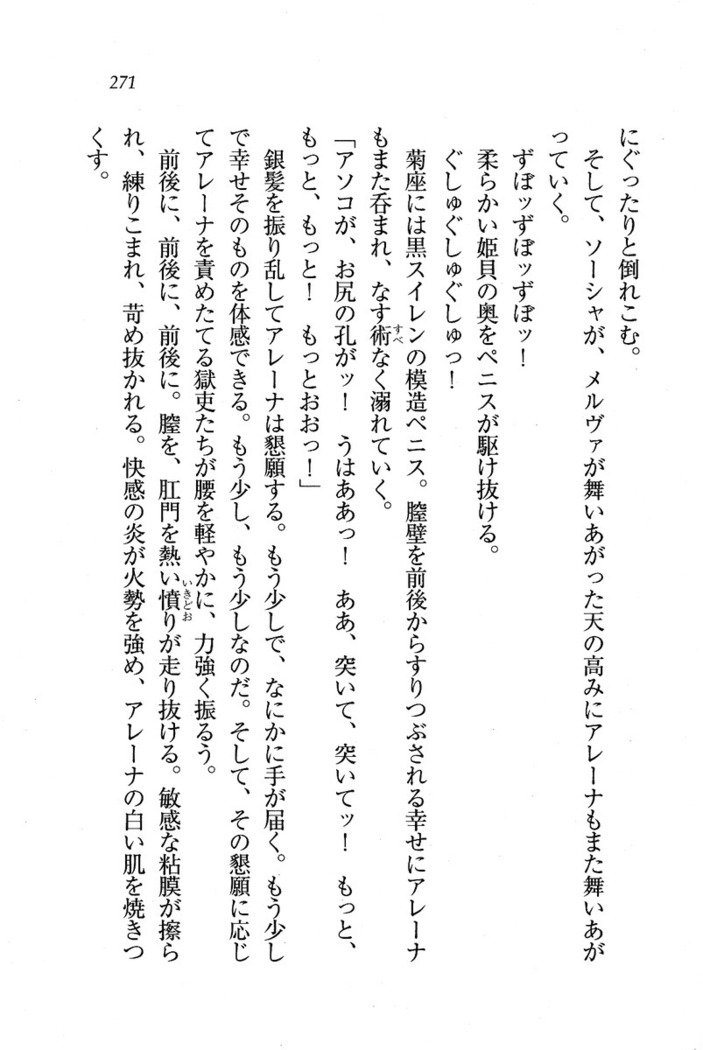 271
にぐったりと倒れこむ。
　そして、ソーシャが、メルヴァが舞いあがった天の高みにアレーナもまた舞いあが
っていく。
　ずぼッずぼッずぼッ！
　柔らかい姫貝の奥をペニスが駆け抜ける。
　ぐしゅぐしゅぐしゅっ！
　菊座には黒スイレンの模造ペニス。膣壁を前後からすりつぶされる幸せにアレーナ
もまた呑まれ、なす術なく溺れていく。
「アソコが、お尻の孔がッ！　うはああっ！　ああ、突いて、突いてッ！　もっと、
もっと、もっと！　もっとおおっ！」
　銀髪を振り乱してアレーナは懇願する。もう少しで、なにかに手が届く。もう少し
で幸せそのものを体感できる。もう少し、もう少しなのだ。そして、その懇願に応じ
てアレーナを責めたてる獄吏たちが腰を軽やかに、力強く振るう。
　前後に、前後に、前後に。膣を、肛門を熱い憤りが走り抜ける。敏感な粘膜が擦ら
れ、練りこまれ、苛め抜かれる。快感の炎が火勢を強め、アレーナの白い肌を焼きつ
くす。